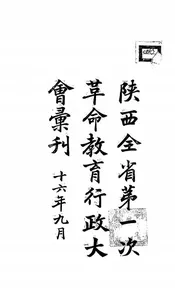 陕西全省第一次
革命教育行政大
會彙刊 十六年九月